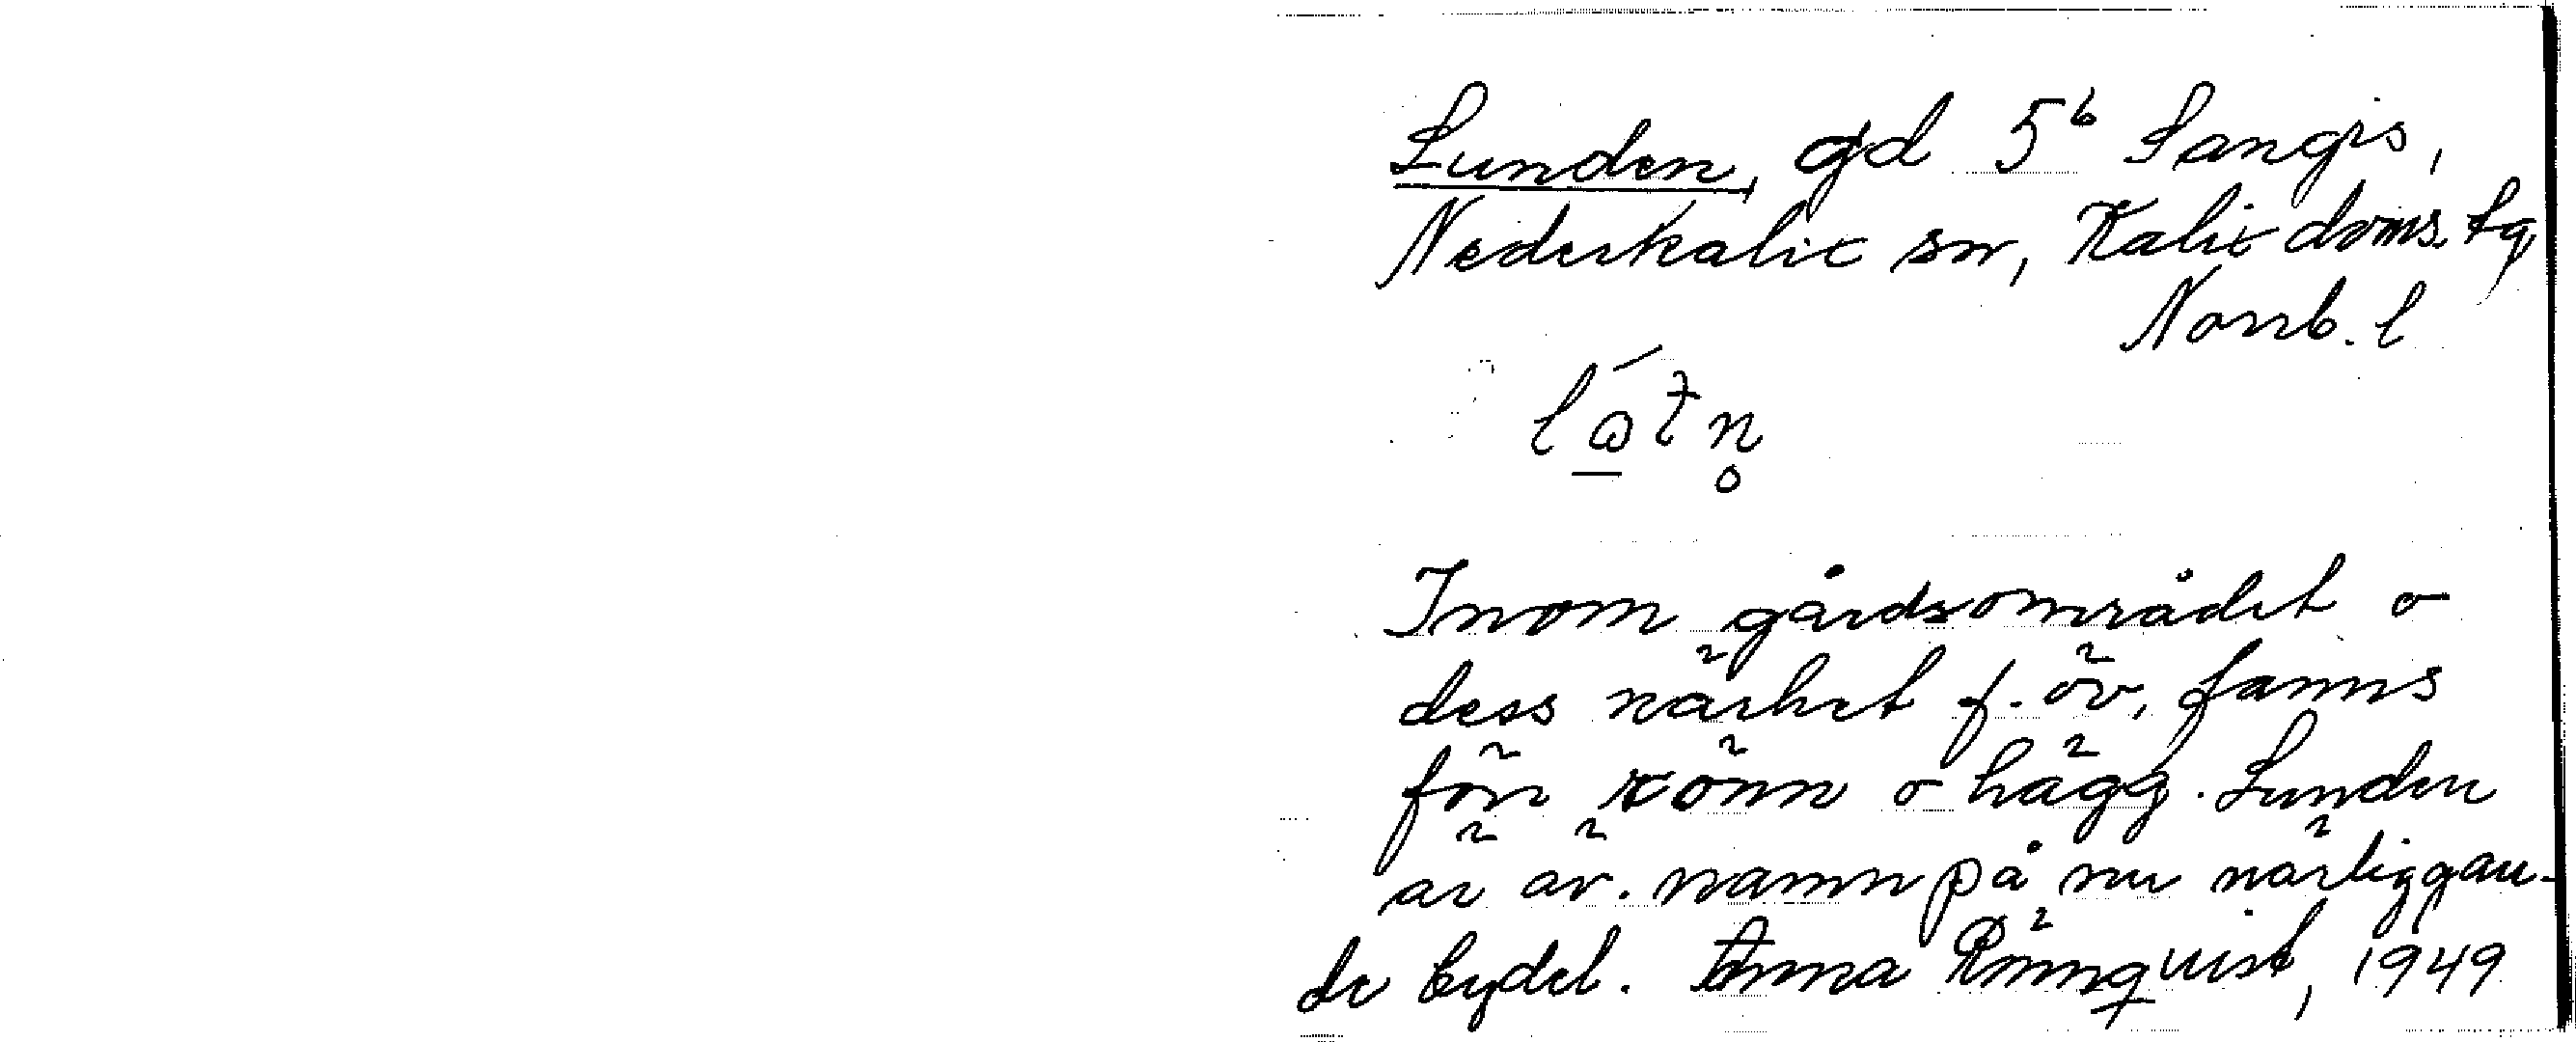 Lunden, gd 5⁶ Sangis,
Nederkalix sn, Kalix doms. tg,
Norrb. l
Inom gårdsområdet o
dess närhet f. öv. fanns
förr rönn o hägg. Lunden
är äv. namn på nu närliggan-
de bydel. Anna Rönnqvist, 1949